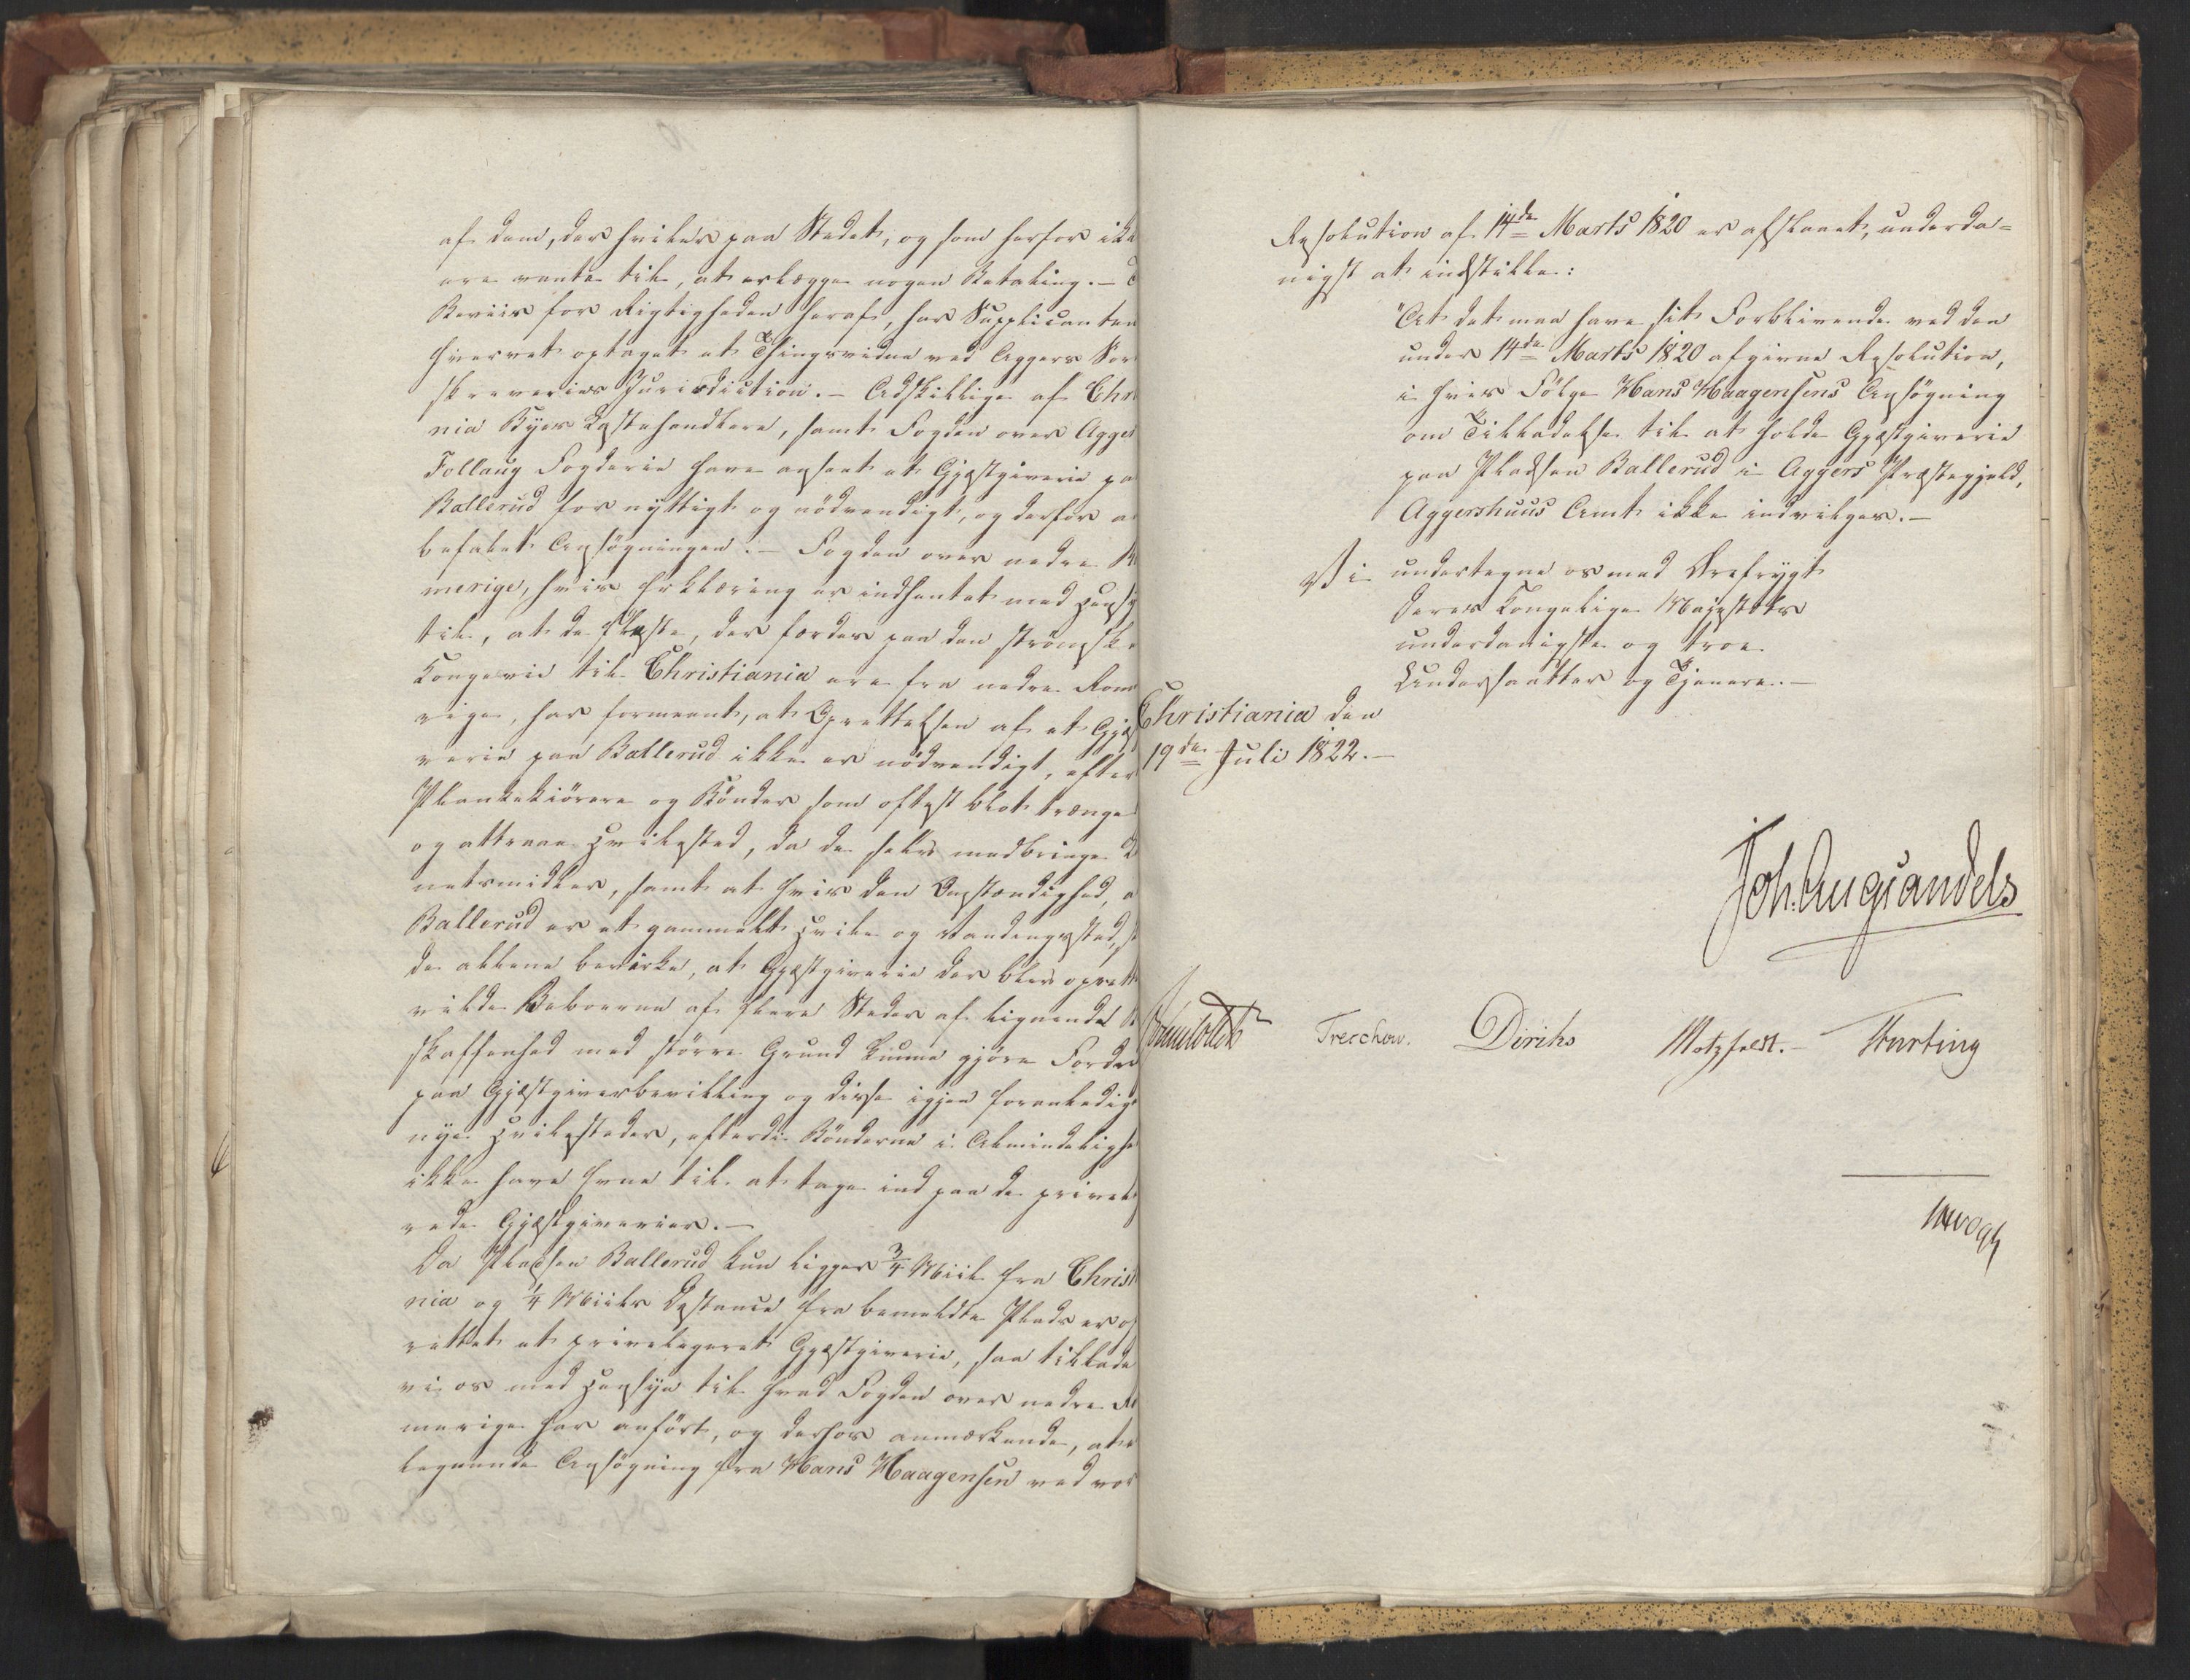 af dem, der hviler paa Stedet, og som herfor ikke
ere vante til, at erlægge nogen Betaling. –
Beviis for Rigtigheden heraf, har Supplicanten
hvervet optaget et Thingsvidne ved Aggers Sor
skreveries Jurisdiction. – Adskillige af Chr
nia Byes Lastehandlere, samt Fogden over Agger
Follaug Fogderie have anseet et Gjæstgiverie pa
Ballerud for nyttigt og nødvendigt, og derfor a
befalet Ansøgningen. – Fogden over nedre R
merige, hvis Erklæring er indhentet med Hensy
til, at de fleste, der færdes paa den strømske
Kongevei til Christiania ere fra nedre Rom
rige, har formeent, at Oprettelsen af et Gjæst
verie paa Ballerud ikke er nødvendigt, efter
Plankekiørere og Bønder som oftest blot trænge
og attraae Hvilested, da de selv medbringe
netsmidler, samt at hvis den Omstændighed, a
Ballerud er et gammelt Hvile og Vandingssted, s
de allene bevirke, at Gjæstgiverie der blev oprett
vilde Beboerne af flere Steder af lignende B
skaffenhed med større Grund kunne gjøre Fordr
paa Gjæstgiverbevilling og disse igjen foranledig
nye Hvilesteder, efterdi Bønderne i Almindelighe
ikke have Evne til at tage ind paa de privel
rede Gjæstgiverier. –
Da Pladsen Ballerud kun ligger 3/4 Miil fra Christ
nia og 1/4 Miils Distance fra bemeldte Plads er o
rettet et privelegeret Gjæstgiverie, saa tillade
vi os med Hensyn til hvad Fogden over nedre R
merige har anført, og derhos anmærkende, at e
lignende Ansøgning fra Hans Haagensen ved vor
Resolution af 14de Marts 1820 er afslaaet, underda=
nigst at indstille:
"At det maa have sit Forblivende ved den
under 14de Marts 1820 afgivne Resolution,
i hvis Følge Hans Haagensens Ansøgning
om Tilladelse til at holde Gjæstgiverie
paa Pladsen Ballerud i Aggers Præstegjeld,
Aggershuus Amt ikke indvilges. –
Vi undertegne os med Ærefrygt
Deres Kongelige Majestæts
underdanigste og troe
Undersaatter og Tjenere. –
Christiania den
19de Juli 1822. –
Joh. Aug Sandels
Treschow. Diriks Motzfeldt. –